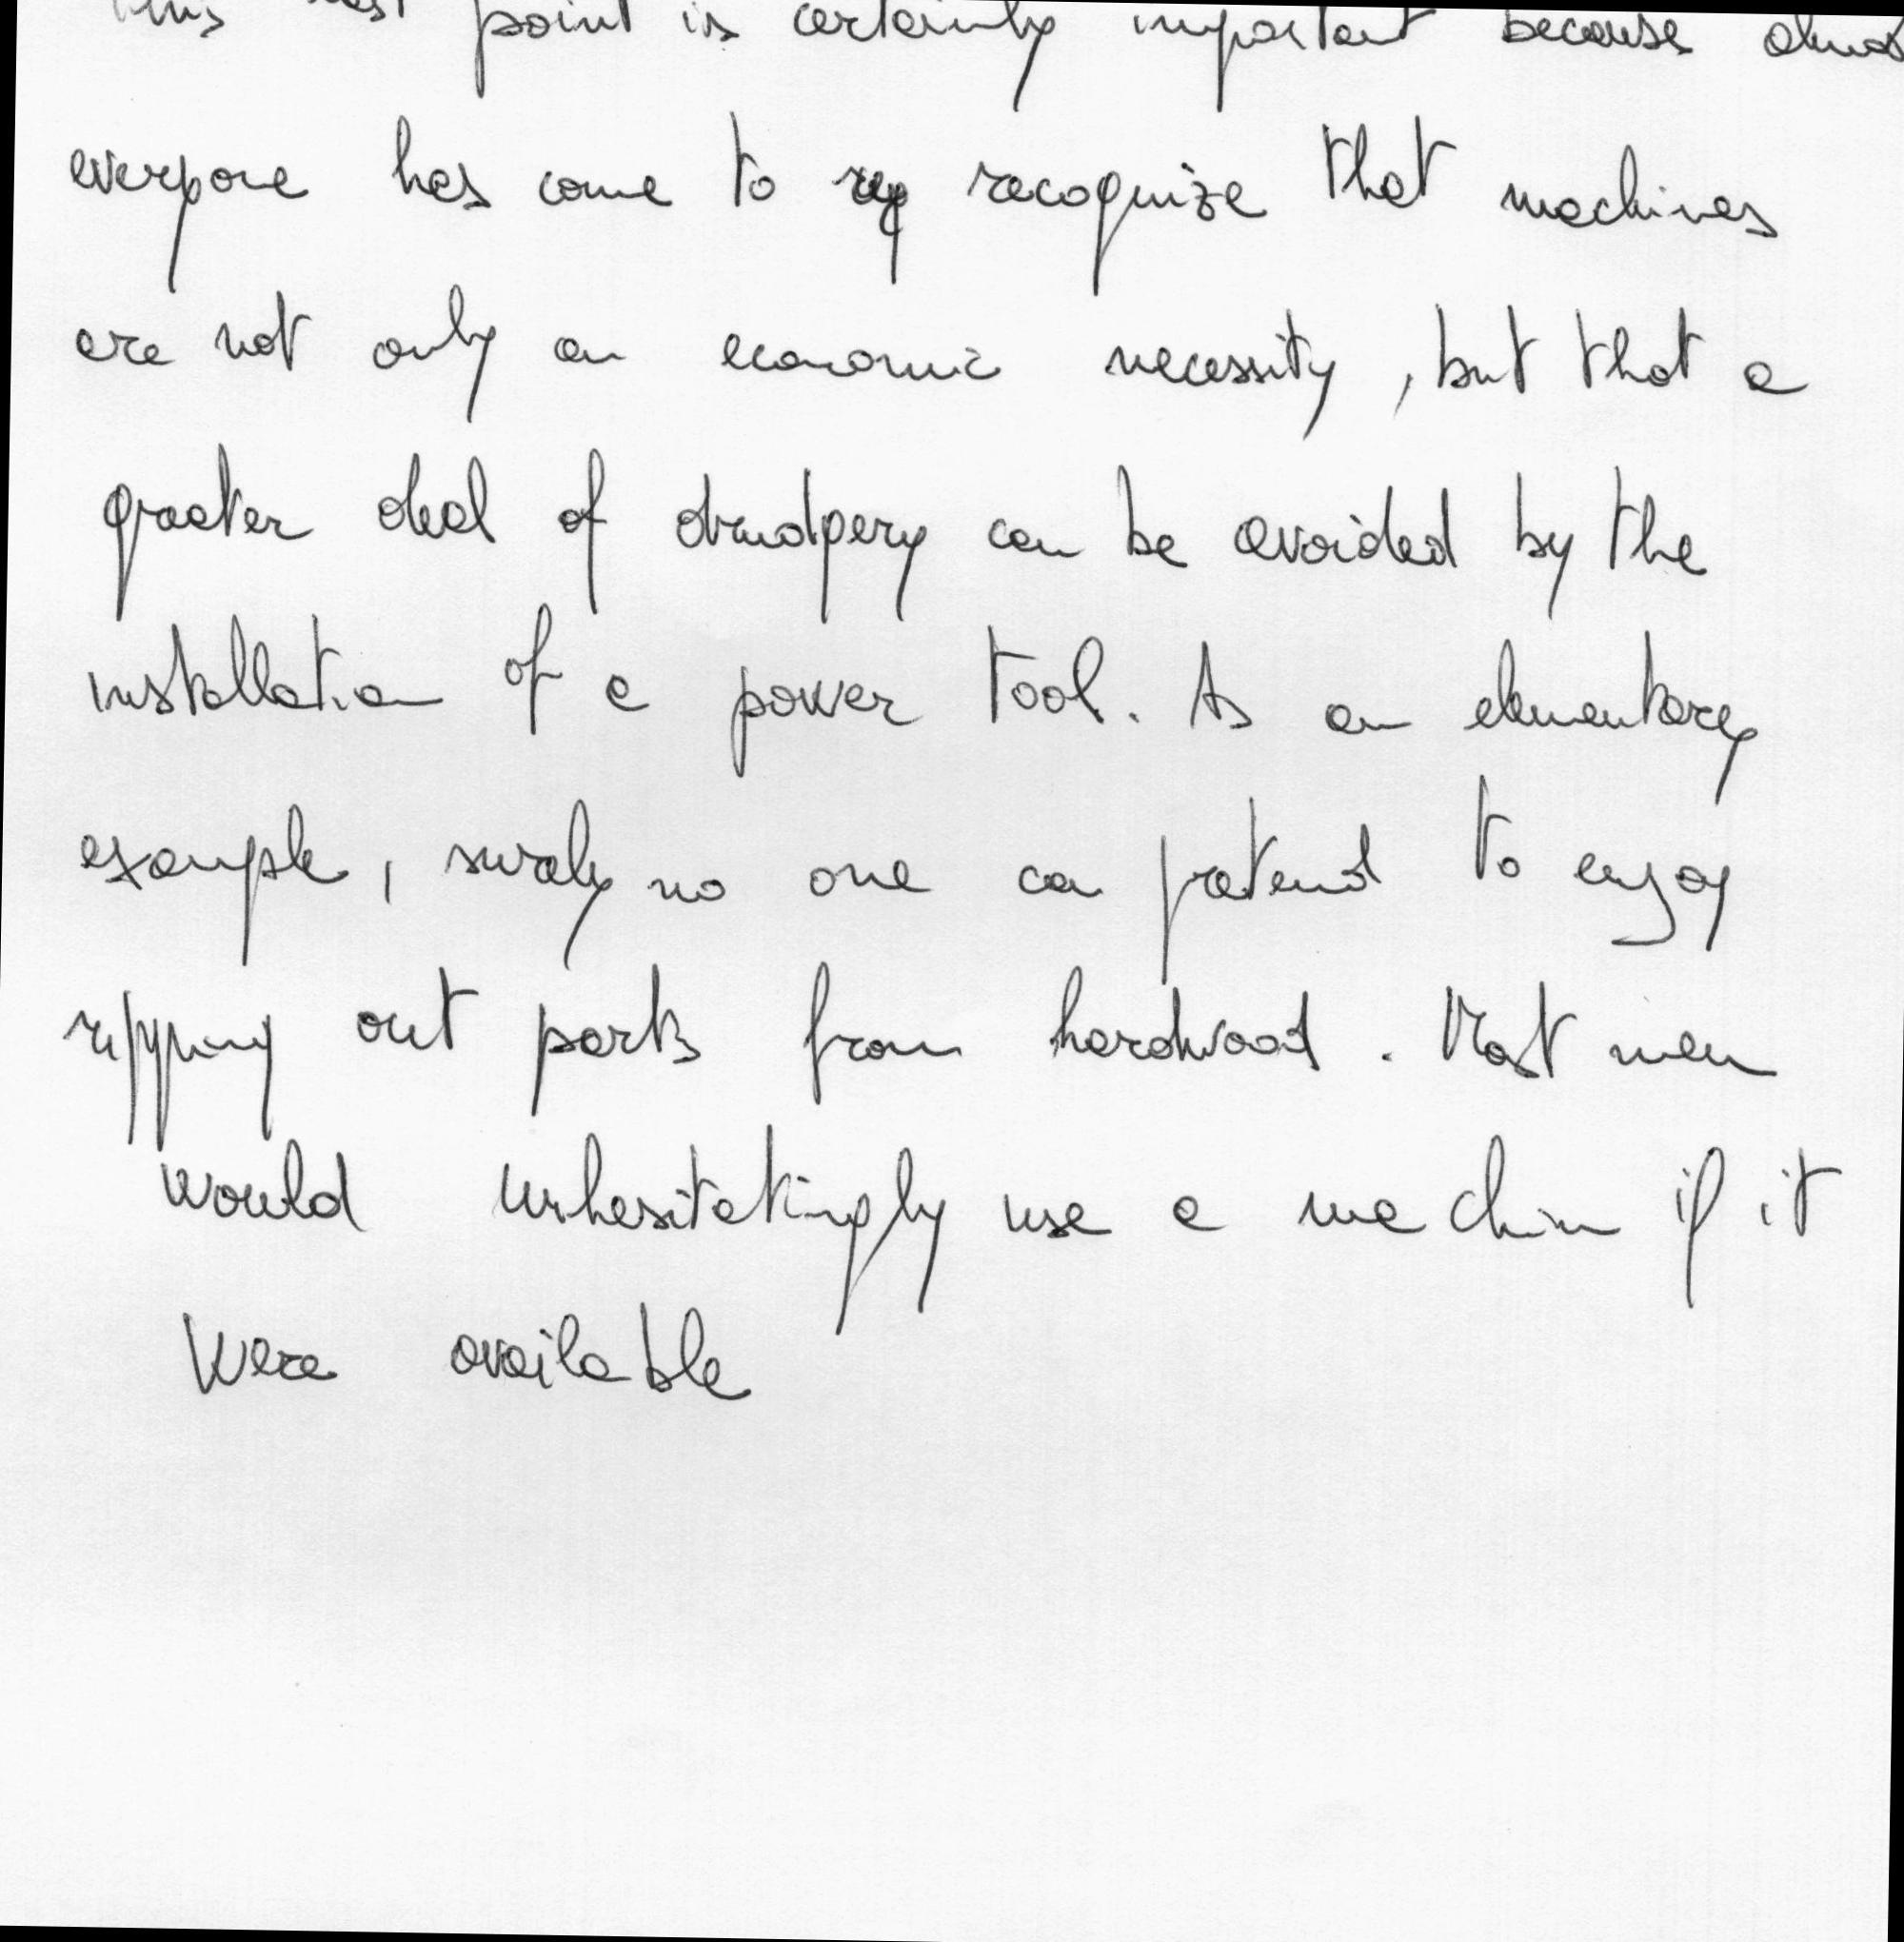 This last point is certainly important because almost
everyone has come to recognize that machines
are not only an economic necessity, but that a
greater deal of drudgery can be avoided by the
installation of a power tool. As an elementary
example, surely no one can pretend to enjoy
ripping out parts from hardwood. Most men
would unhesitatingly use a machine if it
were available